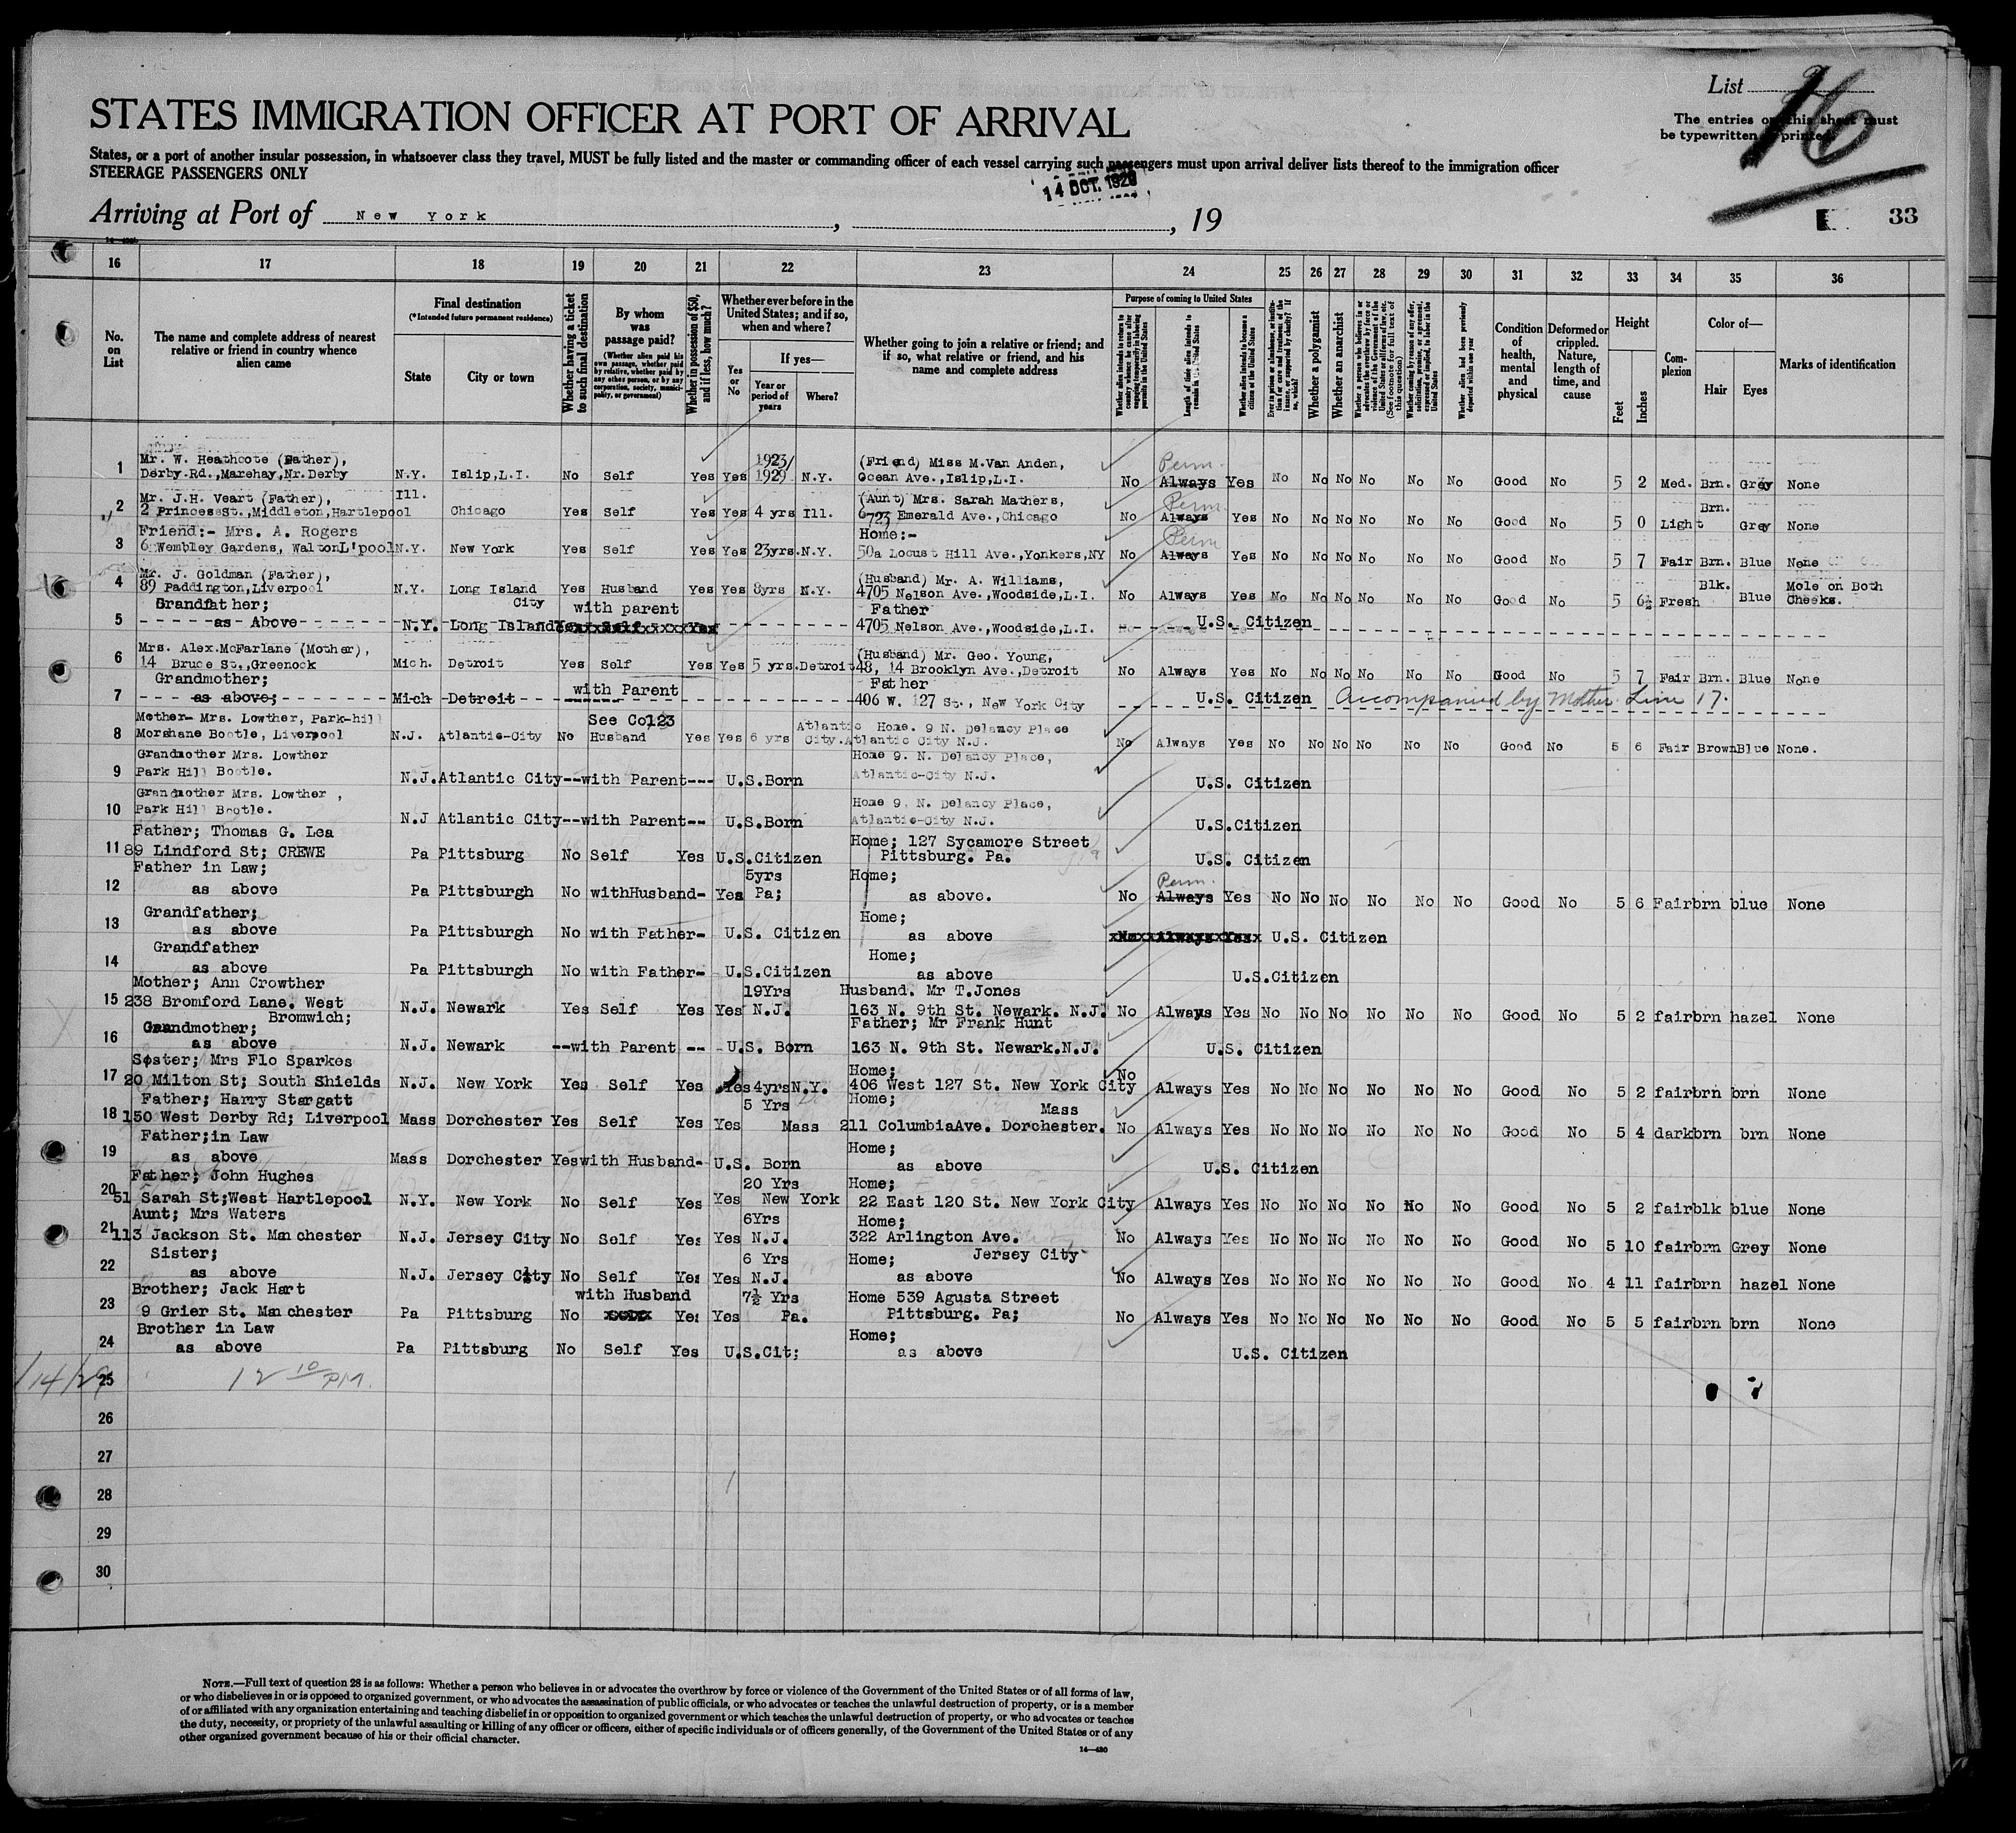 List 16
The entries on this sheet must
be typewritten or printed
STATES IMMIGRATION OFFICER AT PORT OF ARRIVAL
States, or a port of another insular possession, in whatsoever class they travel, MUST be fully listed and the master or commanding officer of each vessel carrying such passengers must upon arrival deliver lists thereof to the immigration officer
STEERAGE PASSENGERS ONLY
14 OCT. 1929
Arriving at Port of New York, , 19
33
16 17 18 19 20 21 22 23 24 25 26 27 28 29 30 31 32 33 34 35 36
No. on List
The name and complete address of nearest relative or friend in country whence alien came
Final destination
(*Intended future permanent residence)
State
City or town
Whether having a ticket to such final destination
By whom was passage paid?
(Whether alien paid his own passage, whether paid by relative, whether paid by any other person, or by any corporation, society, municipality, or government)
Whether in possession of $50, and if less, how much?
Whether ever before in the United States; and if so, when and where?
Yes or No
If yes—
Year or period of years
Where?
Whether going to join a relative or friend; and if so, what relative or friend, and his name and complete address
Purpose of coming to United States
Whether alien intends to return to country whence he came after engaging temporarily in laboring pursuits in the United States
Length of time alien intends to remain in the United States
Whether alien intends to become a citizen of the United States
Ever in prison or almshouse, or institution for care and treatment of the insane, or supported by charity? If so, which?
Whether a polygamist
Whether an anarchist
Whether a person who believes in or advocates the overthrow by force or violence of the Government of the United States or all forms of law, etc. (See footnote for full text of this question)
Whether coming by reason of any offer, solicitation, promise, or agreement, expressed or implied, to labor in the United States
Whether alien had been previously deported within one year
Condition of health, mental and physical
Deformed or crippled. Nature, length of time, and cause
Height
Feet
Inches
Complexion
Color of—
Hair
Eyes
Marks of identification
1 Mr. W. Heathcote (Father), 1923/ (Friend) Miss M.Van Anden, Perm.
Derby.Rd.,Marehay,Nr.Derby N.Y. Islip,L.I. No Self Yes Yes 1929 N.Y. Ocean Ave.,Islip,L.I. No Always Yes No No No No No No Good No 5 2 Med. Brn. Grey None
2 Mr. J.H. Veart (Father), Ill. (Aunt) Mrs. Sarah Mathers, Perm. Brn.
2 Princess St.,Middleton,Hartlepool Chicago Yes Self Yes Yes 4 yrs Ill. 6723 Emerald Ave.,Chicago No Always Yes No No No No No No Good No 5 0 Light Grey None
3 Friend:- Mrs. A. Rogers Home:- Perm
6 Wembley Gardens, Walton L'pool N.Y. New York Yes Self Yes Yes 23yrs. N.Y. 50a Locust Hill Ave.,Yonkers,NY No Always Yes No No No No No No Good No 5 7 Fair Brn. Blue None
4 Mr. J. Goldman (Father), (Husband) Mr. A. Williams, Blk. Mole on Both
89 Paddington,Liverpool N.Y. Long Island City Yes Husband Yes Yes 8yrs N.Y. 4705 Nelson Ave.,Woodside,L.I. No Always Yes No No No No No No Good No 5 6½ Fresh Blue Cheeks.
5 Grandfather; with parent Father
as Above N.Y. Long Island Yes Self Yes 4705 Nelson Ave.,Woodside,L.I. U.S. Citizen
6 Mrs. Alex.McFarlane (Mother), (Husband) Mr. Geo. Young,
14 Bruce St.,Greenock Mich. Detroit Yes Self Yes Yes 5 yrs. Detroit 48, 14 Brooklyn Ave.,Detroit No Always Yes No No No No No No Good No 5 7 Fair Brn. Blue None
7 Grandmother; with Parent Father
as above; Mich Detroit 406 W. 127 St., New York City U.S. Citizen Accompanied by Mother Line 17.
8 Mother- Mrs. Lowther, Park-hill See Col23 Atlantic Home. 9 N. Delancy Place
Morshane Bootle, Liverpool N.J. Atlantic-City No Husband Yes Yes 6 yrs City. Atlantic City N.J. No Always Yes No No No No No No Good No 5 6 Fair Brown Blue None.
9 Grandmother Mrs. Lowther Home 9. N. Delancy Place,
Park Hill Bootle. N.J. Atlantic City--with Parent--- U.S.Born Atlantic-City N.J. U.S. Citizen
10 Grandmother Mrs. Lowther , Home 9. N. Delancy Place,
Park Hill Bootle. N.J Atlantic City--with Parent-- U.S.Born Atlantic-City N.J. U.S.Citizen
11 Father; Thomas G. Lea Home; 127 Sycamore Street
89 Lindford St; CREWE Pa Pittsburg No Self Yes U.S.Citizen Pittsburg. Pa. U.S. Citizen
12 Father in Law; 5yrs Home; Perm.
as above Pa Pittsburgh No withHusband- Yes Pa; as above. No Always Yes No No No No No No Good No 5 6 Fair brn blue None
13 Grandfather; Home;
as above Pa Pittsburgh No with Father- U.S. Citizen as above No Always Yes U.S. Citizen
14 Grandfather Home;
as above Pa Pittsburgh No with Father- U.S.Citizen as above U.S.Citizen
15 Mother; Ann Crowther 19Yrs Husband. Mr T.Jones
238 Bromford Lane. West Bromwich; N.J. Newark Yes Self Yes Yes N.J. 163 N. 9th St. Newark. N.J. No Always Yes No No No No No No Good No 5 2 fair brn hazel None
16 Grandmother; Father; Mr Frank Hunt
as above N.J. Newark --with Parent -- U.S. Born 163 N. 9th St. Newark.N.J. U.S. Citizen
17 Sister; Mrs Flo Sparkes Home; No
20 Milton St; South Shields N.J. New York Yes Self Yes Yes 4yrs N.Y. 406 West 127 St. New York City Always Yes No No No No No No Good No 5 2 fair brn brn None
18 Father; Harry Stargatt 5 Yrs Home; Mass
150 West Derby Rd; Liverpool Mass Dorchester Yes Self Yes Yes Mass 211 ColumbiaAve. Dorchester. No Always Yes No No No No No No Good No 5 4 dark brn brn None
19 Father;in Law Home;
as above Mass Dorchester Yes with Husband- U.S. Born as above U.S. Citizen
20 Father; John Hughes 20 Yrs Home;
51 Sarah St;West Hartlepool N.Y. New York No Self Yes Yes New York 22 East 120 St. New York City Always Yes No No No No No No Good No 5 2 fair blk blue None
21 Aunt; Mrs Waters 6Yrs Home;
113 Jackson St. Manchester N.J. Jersey City No Self Yes Yes N.J. 322 Arlington Ave. Jersey City No Always Yes No No No No No No Good No 5 10 fair brn Grey None
22 Sister; 6 Yrs Home;
as above N.J. Jersey City No Self Yes Yes N.J. as above No Always Yes No No No No No No Good No 4 11 fair brn hazel None
23 Brother; Jack Hart with Husband 7½ Yrs Home 539 Agusta Street
9 Grier St. Manchester Pa Pittsburg No Yes Yes Pa. Pittsburg. Pa; No Always Yes No No No No No No Good No 5 5 fair brn brn None
24 Brother in Law Home;
as above Pa Pittsburg No Self Yes U.S.Cit; as above U.S. Citizen
25 /14/29 12 10 PM.
26
27
28
29
30
NOTE.—Full text of question 28 is as follows: Whether a person who believes in or advocates the overthrow by force or violence of the Government of the United States or of all forms of law,
or who disbelieves in or is opposed to organized government, or who advocates the assassination of public officials, or who advocates or teaches the unlawful destruction of property, or is a member
of or affiliated with any organization entertaining and teaching disbelief in or opposition to organized government or which teaches the unlawful destruction of property, or who advocates or teaches
the duty, necessity, or propriety of the unlawful assaulting or killing of any officer or officers, either of specific individuals or of officers generally, of the Government of the United States or of any
other organized government because of his or their official character.
14—430